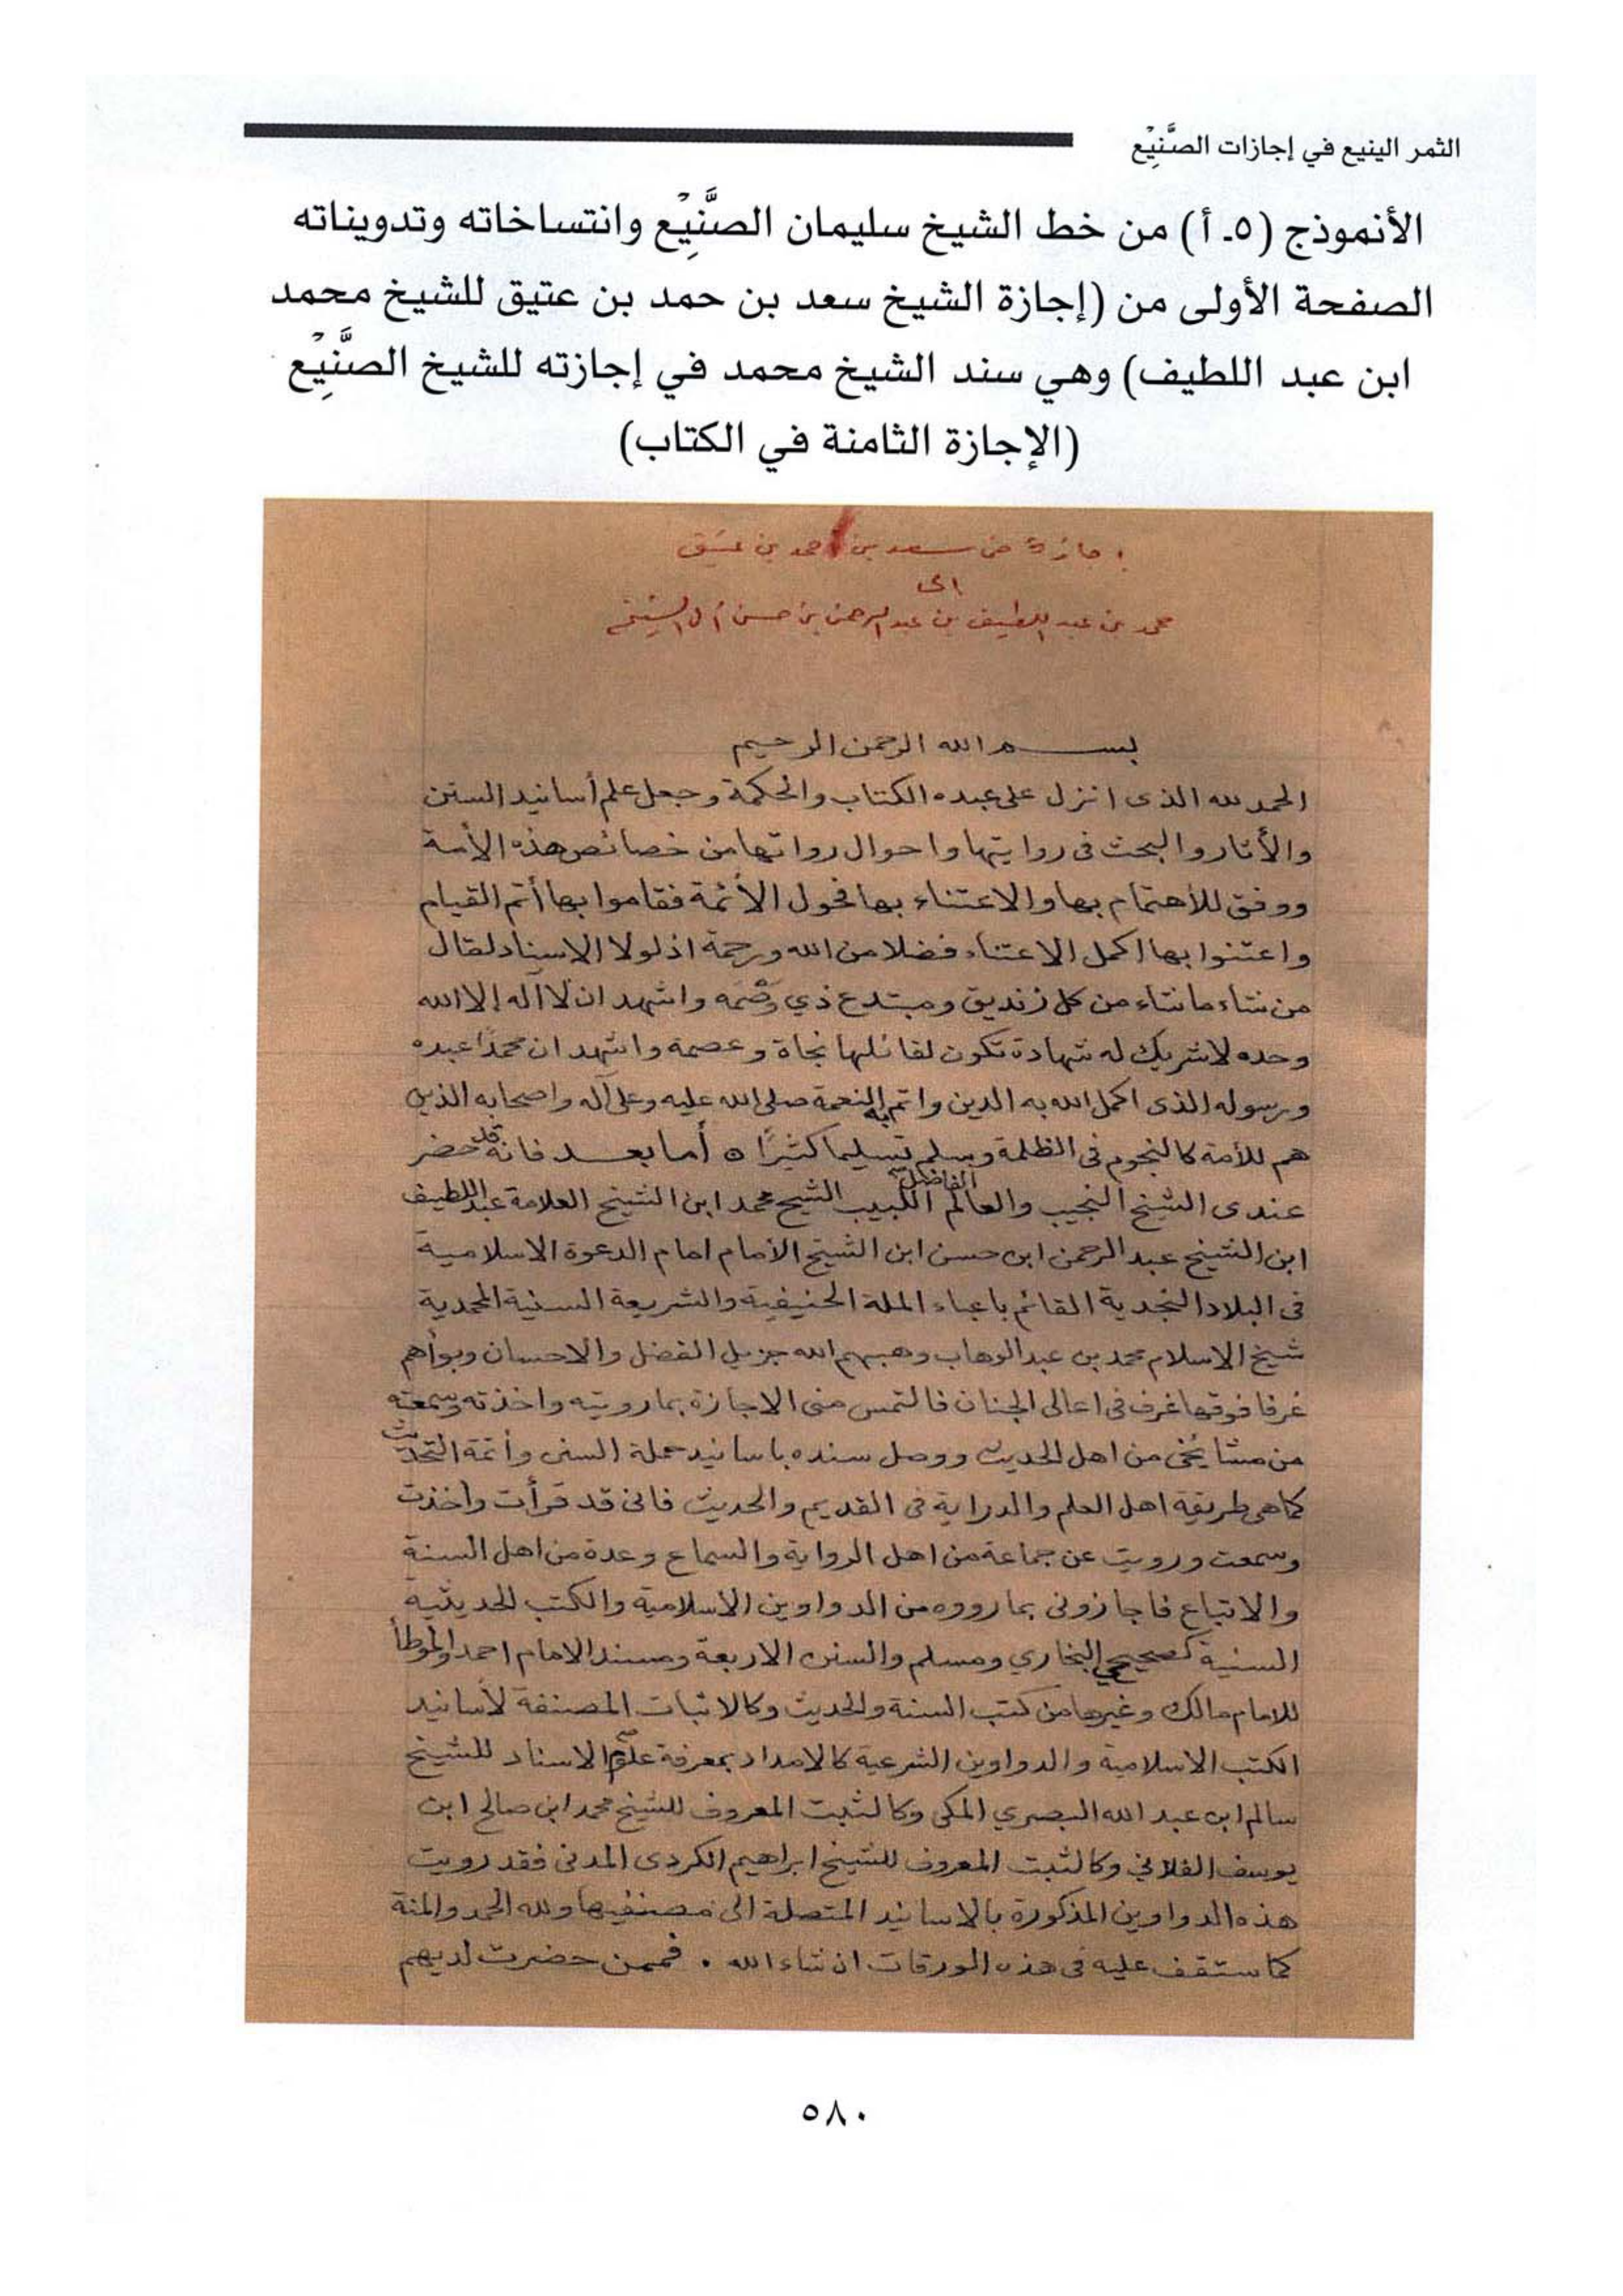 الثمر الينيع في إجازات الصَّنِيْع
الأنموذج (٥ـ أ) من خط الشيخ سليمان الصَّنِيْع وانتساخاته وتدويناته
الصفحة الأولى من (إجازة الشيخ سعد بن حمد بن عتيق للشيخ محمد
ابن عبد اللطيف) وهي سند الشيخ محمد في إجازته للشيخ الصَّنِيْع
(الإجازة الثامنة في الكتاب)
إجازة من سعد بن حمد بن عتيق
الى
محمد بن عبد اللطيف بن عبد الرحمن بن حسن آل الشيخ
بسم الله الرحمن الرحيم
الحمد لله الذى انزل على عبده الكتاب والحكمة وجعل علم أسانيد السنن
والأثار والبحث فى روايتها واحوال رواتها من خصائص هذه الأمة
ووفق للأهتمام بها والاعتناء بها فحول الأئمة فقاموا بها أتم القيام
واعتنوا بها اكمل الاعتناء فضلا من الله ورحمة اذ لولا الاسناد لقال
من شاء ما شاء من كل زنديق ومبتدع ذي وصمة واشهد ان لا اله إلا الله
وحده لا شريك له شهادة تكون لقائلها نجاة وعصمة واشهد ان محمدًا عبده
ورسوله الذى اكمل الله به الدين واتم به النعمة صلى الله عليه وعلى آله واصحابه الذين
هم للأمة كالنجوم فى الظلمة وسلم تسليما كثيرًا ه أما بعد فانه قد حضر
عندى الشيخ النجيب والعالم الفاضل اللبيب الشيخ محمد ابن الشيخ العلامة عبد اللطيف
ابن الشيخ عبد الرحمن ابن حسن ابن الشيخ الأمام امام الدعوة الاسلامية
فى البلاد النجدية القائم باعباء الملة الحنيفية والشريعة السنية المحمدية
شيخ الاسلام محمد بن عبد الوهاب وهبهم الله جزيل الفضل والاحسان وبوأهم
غرفا فوقها غرف فى اعالى الجنان فالتمس منى الاجازة بما رويته واخذته وسمعته
من مشايخى من اهل الحديث ووصل سنده باسانيد حملة السنن وأئمة التحديث
كما هى طريقة اهل العلم والدراية فى القديم والحديث فانى قد قرأت واخذت
وسمعت ورويت عن جماعة من اهل الرواية والسماع وعدة من اهل السنة
والاتباع فاجازونى بما رووه من الدواوين الاسلامية والكتب الحديثية
السنية كصحيحي البخاري ومسلم والسنن الاربعة ومسند الامام احمد والموطأ
للامام مالك وغيرها من كتب السنة والحديث وكالاثبات المصنفة لأسانيد
الكتب الاسلامية والدواوين الشرعية كالامداد بمعرفة علو الاسناد للشيخ
سالم ابن عبد الله البصري المكى وكالثبت المعروف للشيخ محمد ابن صالح ابن
يوسف الفلاني وكالثبت المعروف للشيخ ابراهيم الكردى المدنى فقد رويت
هذه الدواوين المذكورة بالاسانيد المتصلة الى مصنفيها ولله الحمد والمنة
كما ستقف عليه فى هذه الورقات ان شاء الله . فممن حضرت لديهم
٥٨٠